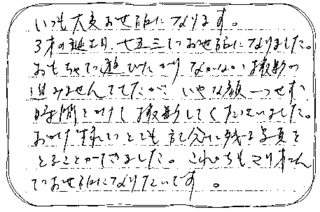 いつも大変お世話になります。
3才の誕生日、七五三でお世話になりました。
おもちゃで遊びたがりなかなか撮影が
進みませんでしたが、いやな顔一つせず
時間をかけて撮影してくださいました。
おかげ様でとても記念に残る写真を
とることができました。これからも
でお世話になりたいです。